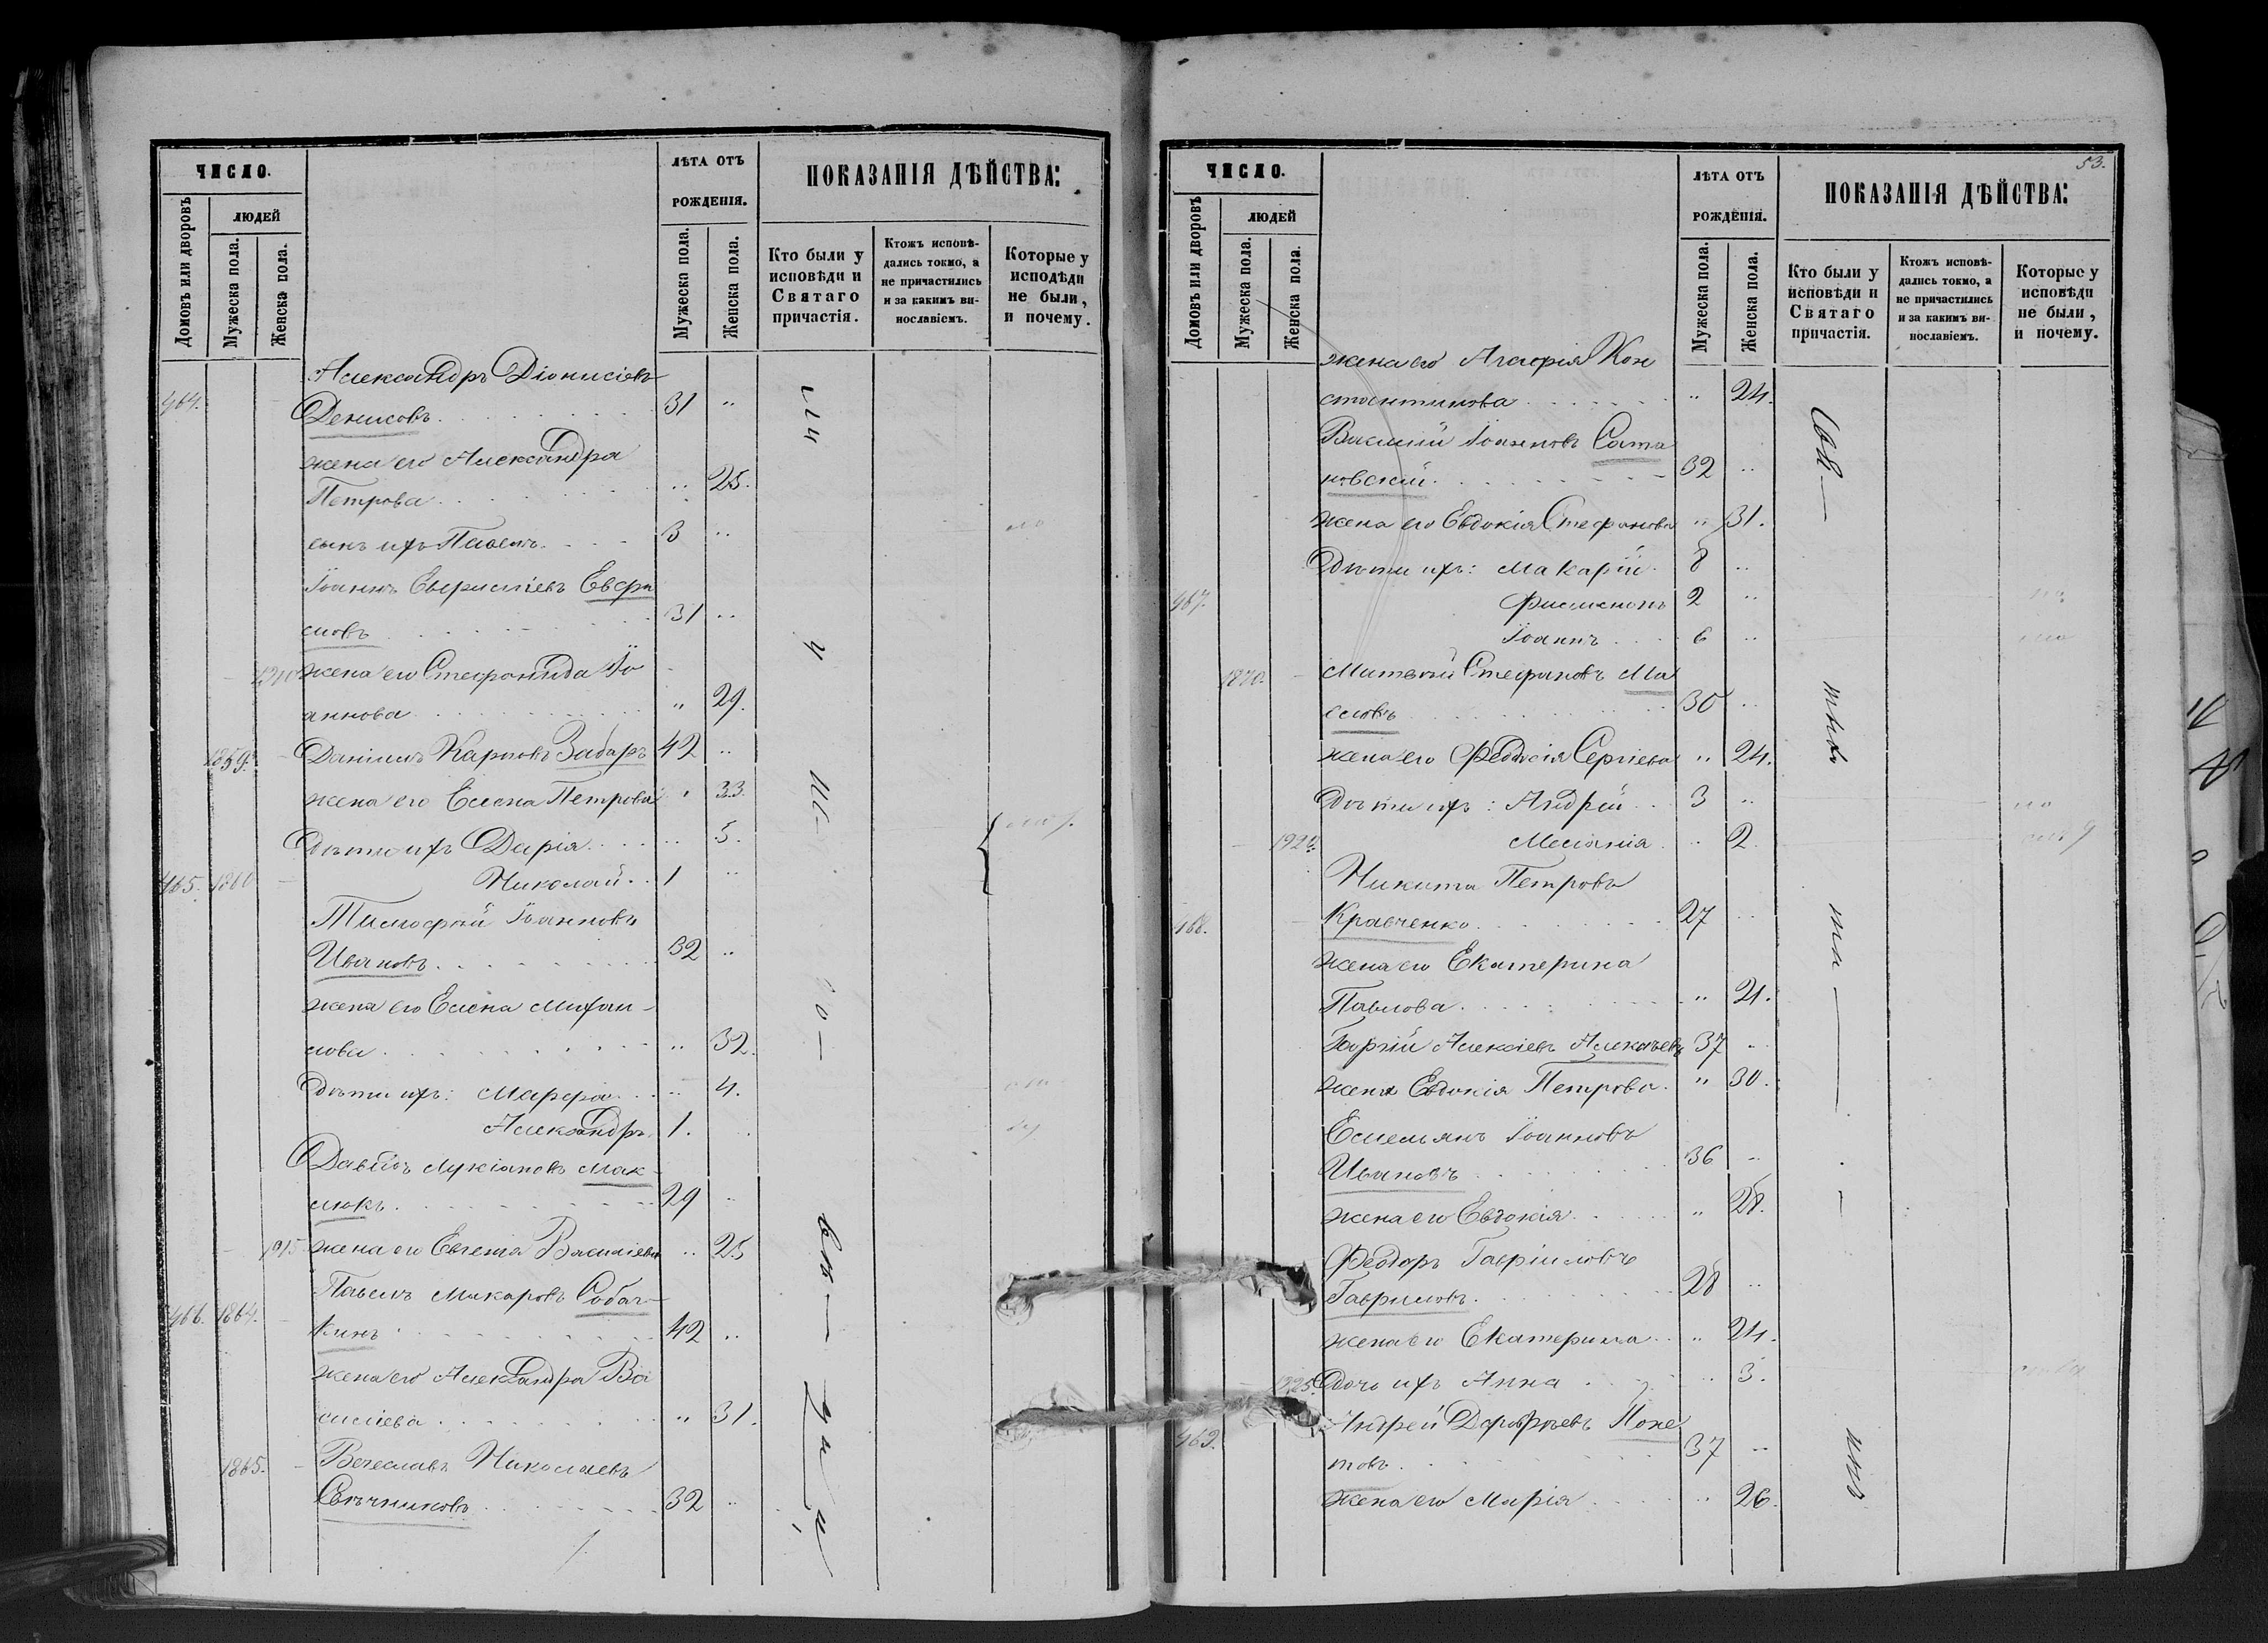 ЧИСЛО.
Домовъ или дворовъ
ЛЮДЕЙ
Мужеска пола.
Женска пола.
ЛѢТА ОТЪ
РОЖДЕНІЯ.
Мужеска пола.
Женска пола.
ПОКАЗАНІЯ ДѢЙСТВА:
Кто были у
исповѣди и
Святаго
причастія.
Ктожъ исповѣ-
дались токмо, а
не причастились
и за какимъ ви-
нословіемъ.
Которые у
исповѣди
не были,
и почему.
Александръ Діонисіевъ
464. Денисовъ 31 "
жена его Александра
Петрова " 25.
сынъ ихъ Павелъ 3 "
Іоаннъ
31 "
жена его Стефанида Іо
аннова " 29.
1859. Даніилъ Карповъ Забаръ 42 "
жена его Елена Петрова " 33.
дѣти ихъ Дарія " 5.
465. 1860 Николай 1 "
Тимофей Іоанновъ
Ивановъ 32 "
жена его Елена Михаи-
лова " 32.
дѣти ихъ: Марфа " 4.
Александръ 1.
Давидъ Лукіановъ Мак-
люкъ 29 "
1915 жена его Евгенія Василіева " 25
Павелъ Макаровъ Собач-
466. 1864. кинъ 42 "
жена его Александра Ва
силіева " 31.
1865. Вячеславъ Николаевъ
Свѣчниковъ 32 "
53.
ЧИСЛО.
Домовъ или дворовъ
ЛЮДЕЙ
Мужеска пола.
Женска пола.
ЛѢТА ОТЪ
РОЖДЕНІЯ.
Мужеска пола.
Женска пола.
ПОКАЗАНІЯ ДѢЙСТВА:
Кто были у
исповѣди и
Святаго
причастія.
Ктожъ исповѣ-
дались токмо, а
не причастились
и за какимъ ви-
нословіемъ.
Которые у
исповѣди
не были,
и почему.
жена его Агафія Кон
стантинова " 24.
Василій Іоанновъ Сата
новскій 32 "
жена его Евдокія Стефанова " 31.
Дѣти ихъ: Макарій 8 "
467. Филимонъ 2 "
Іоаннъ 6 "
1870. Матвѣй Стефановъ Ма
словъ 30 "
жена его Феодосія Сергіева " 24.
дѣти ихъ: Андрей 3 "
Меланія " 2.
Никита Петровъ
468. Кравченко 27 "
жена его Екатерина
Павлова " 21.
Георгій Алексіевъ Алексѣевъ 37 "
жена Евдокія Петрова " 30.
Емельянъ Іоанновъ
Ивановъ 36 "
жена его Евдокія " 28.
Феодоръ Гавріиловъ
Гавриловъ 28 "
жена его Екатерина " 24.
1925. дочь ихъ Анна " 3.
Андрей Дорофѣевъ
469. 37 "
жена его Марія " 26.